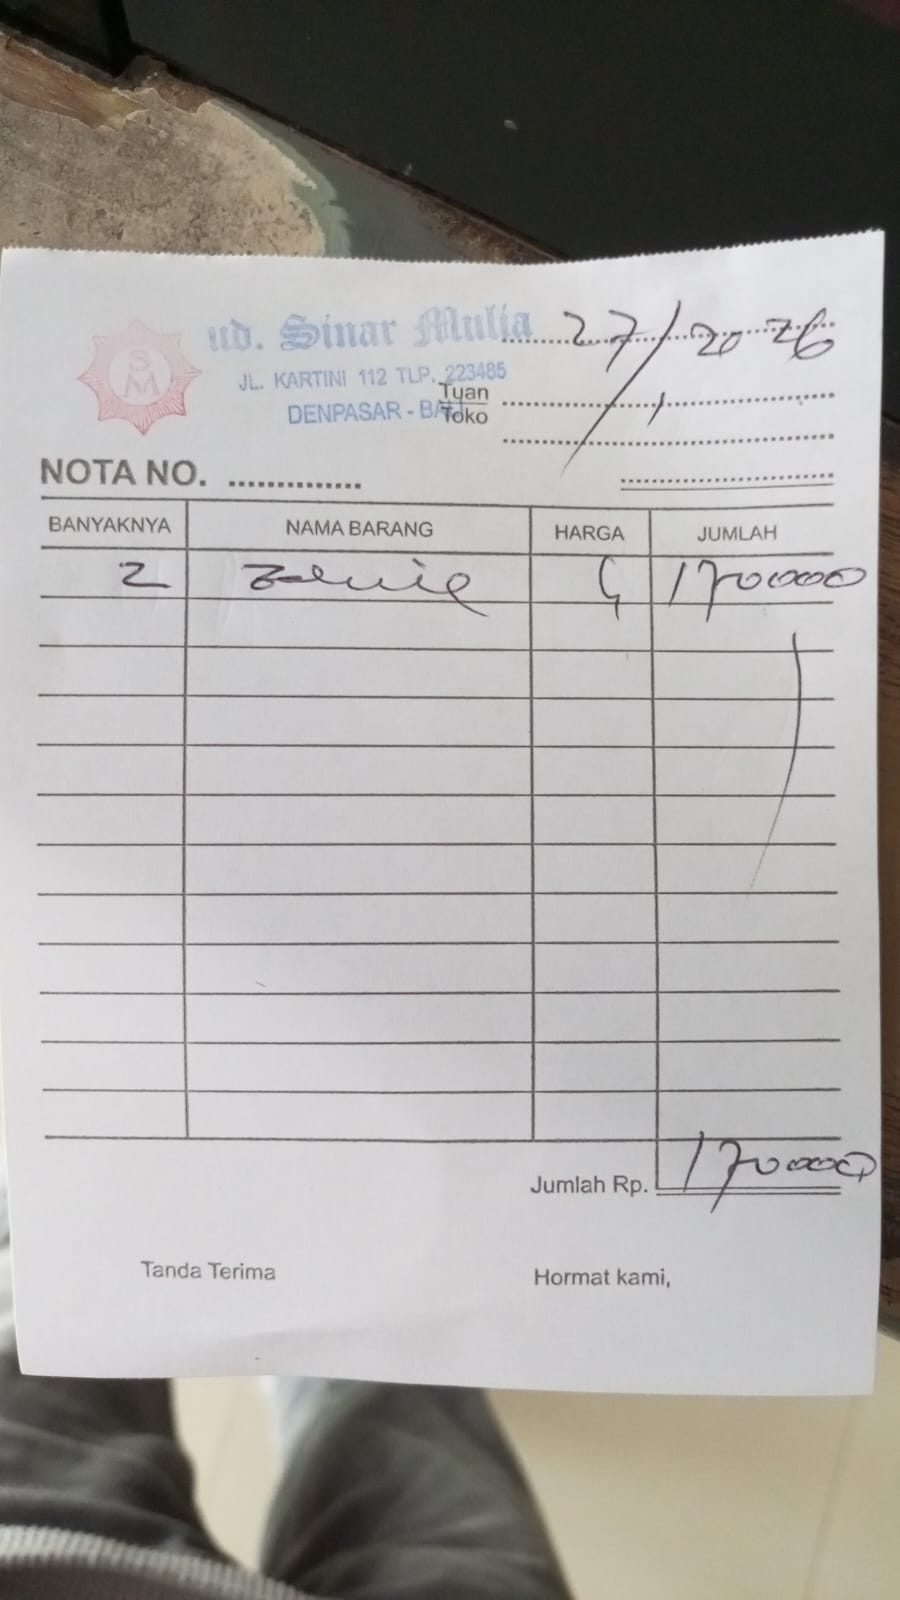 SM
ud. Sinar Mulia
JL. KARTINI 112 TLP. 223485
DENPASAR - BALI
27/1 2026
Tuan
Toko
NOTA NO.
BANYAKNYA NAMA BARANG HARGA JUMLAH
2 170000
Jumlah Rp. 170000
Tanda Terima Hormat kami,